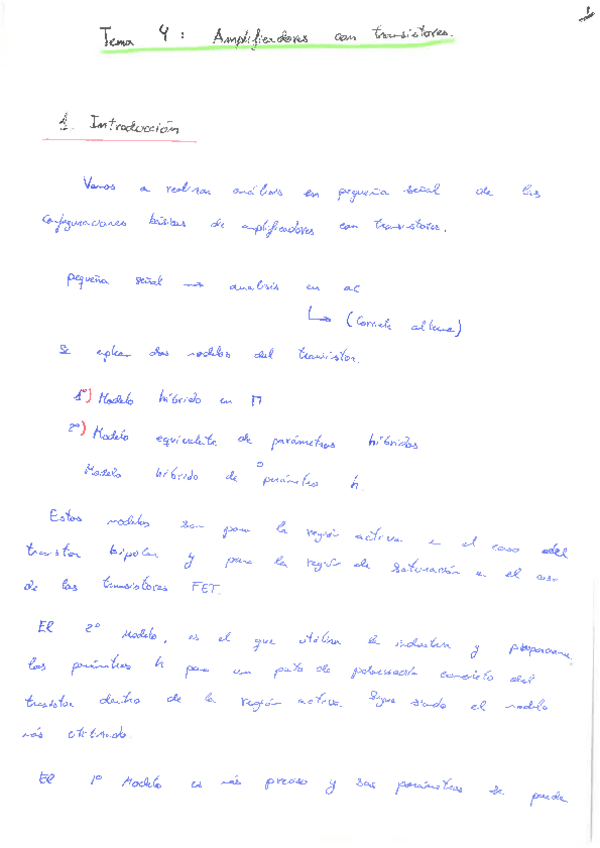 1
Tema 4: Amplificadores con transistores.
1. Introducción
Vamos a realizar análisis en pequeña señal de las
configuraciones básicas de amplificadores con transistores.
pequeña señal → analisis en ac
↳ (Corriente alterna)
Se emplean dos modelos del transistor.
1º) Modelo híbrido en Π
2º) Modelo equivalente de parámetros híbridos
o
Modelo híbrido de parámetros h.
Estos modelos son para la región activa en el caso del
transistor bipolar y para la región de saturación en el caso
de los transistores FET.
El 2º Modelo, es el que utiliza la industria y proporciona
los parámetros h para un punto de polarización concreto del
transistor dentro de la región activa. Sigue siendo el modelo
más utilizado.
El 1º Modelo es más preciso y sus parámetros se puede